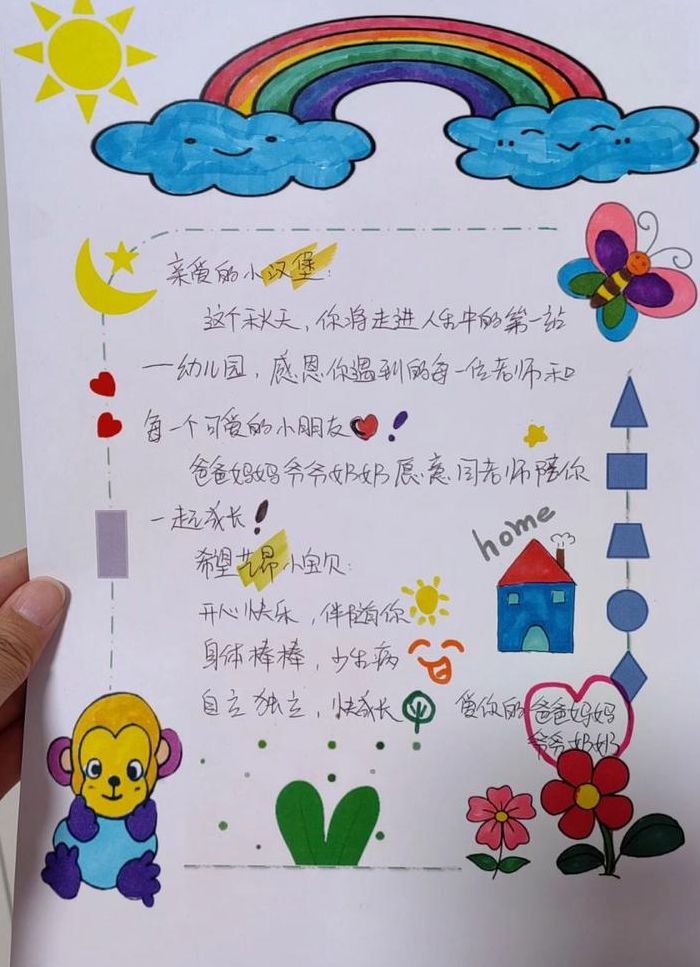 亲爱的小汉堡:
这个秋天，你将走进人生中的第一站
一幼儿园，感恩你遇到的每一位老师和
每一个可爱的小朋友!
爸爸妈妈爷爷奶奶愿意同老师陪你
一起成长!
希望艺昂小宝贝:
home
开心快乐，伴随你
身体棒棒，少生病
自立独立，快成长
爱你的爸爸妈妈
爷爷奶奶